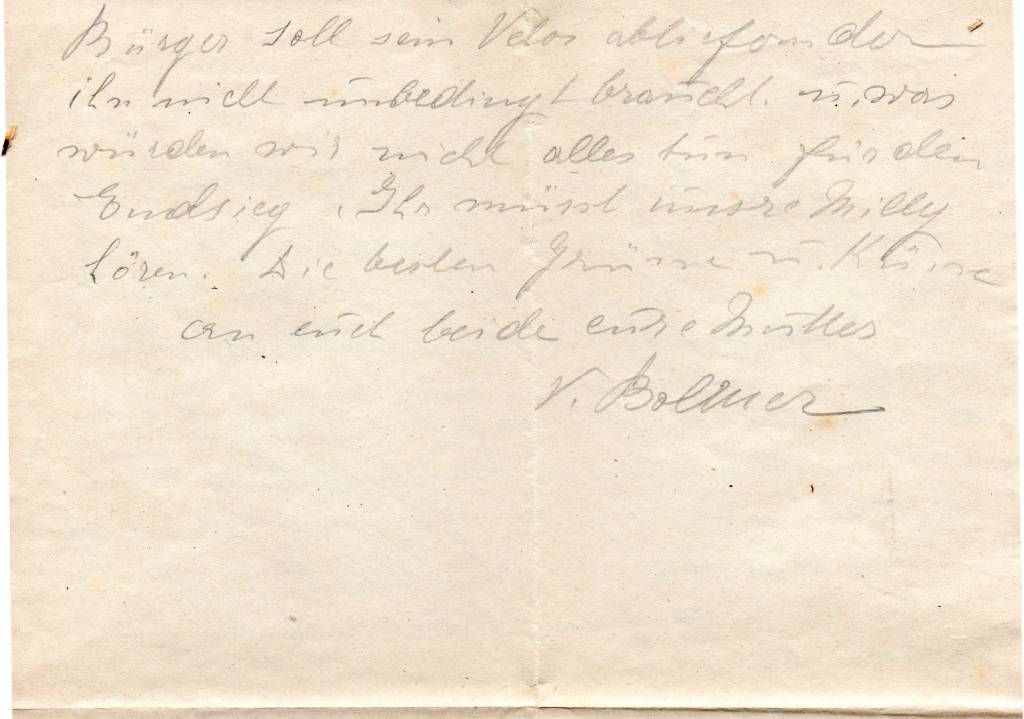 Bürger soll sein Velos abliefern der
ihn nicht unbedingt braucht. u. was
würden wir nicht alles tun für den
Endsieg. Ihr müsst unsre Milly
hören. Die besten Grüsse u. Küsse
an euch beide eure Mutter
V. Bollmer